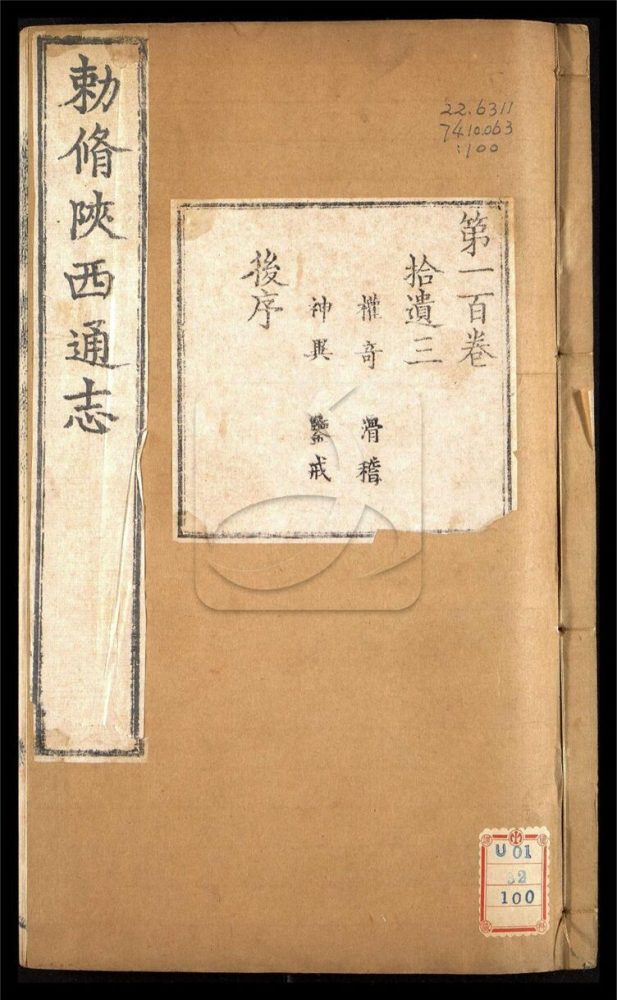 勅脩陝西通志
第一百卷
拾遺三
權奇 滑稽
神異 鑒戒
後序
22.6311
7410.063
:100
U 01
32
100